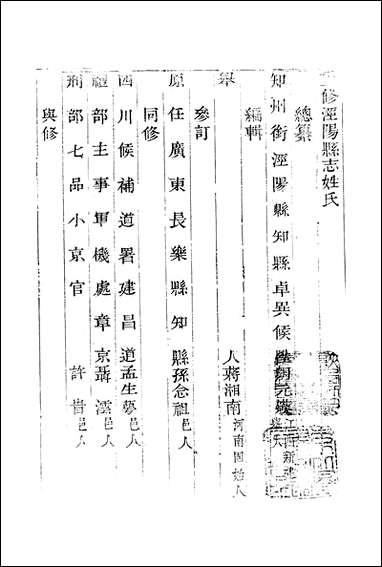 修涇陽縣志姓氏
總纂
知州銜涇陽縣知縣卓異候
編輯
舉人蔣湘南河南固始人
參訂
原任廣東長樂縣知縣孫念祖邑人
同修
四川候補道署建昌道孟生蕙邑人
禮部主事軍機處章京聶澐邑人
刑部七品小京官許邑人
與修